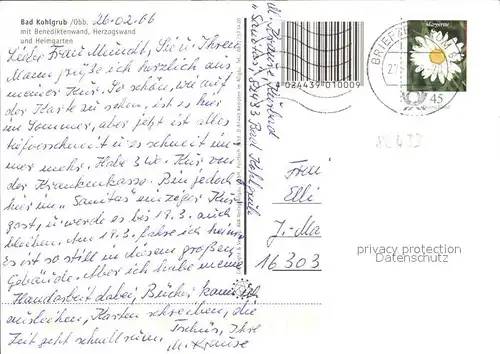 Bad Kohlgrub /Obb. 26.02.06
mit Benediktenwand, Herzogswand
und Heimgarten
Liebe Frau Mundt, Sie u. Ihren
Mann grüße ich herzlich aus
meiner Kur. So schön, wie auf
der Karte zu sehen, ist es hier
im Sommer, aber jetzt ist alles
tiefverschneit u. es schneit im-
mer mehr. Habe 3 Wo. Kur von
der Krankenkasse. Bin jedoch
hier im „Sanitas" einziger Kur-
gast, u. werde es bis 19.3. auch
bleiben. Am 19.3. fahre ich heim.
Es ist so still in diesem großen
Gebäude. Aber ich habe meine
Handarbeit dabei, Bücher kann ich
ausleihen, Karten schreiben, die
Zeit geht schnell rum. Tschüs, Ihre
M. Krause
82433 Bad Kohlgrub
2 024439 010009
BRIEFZ
Margerite
45
82433
Frau
Elli
J.-Ma
16303
privacy protection
Datenschutz